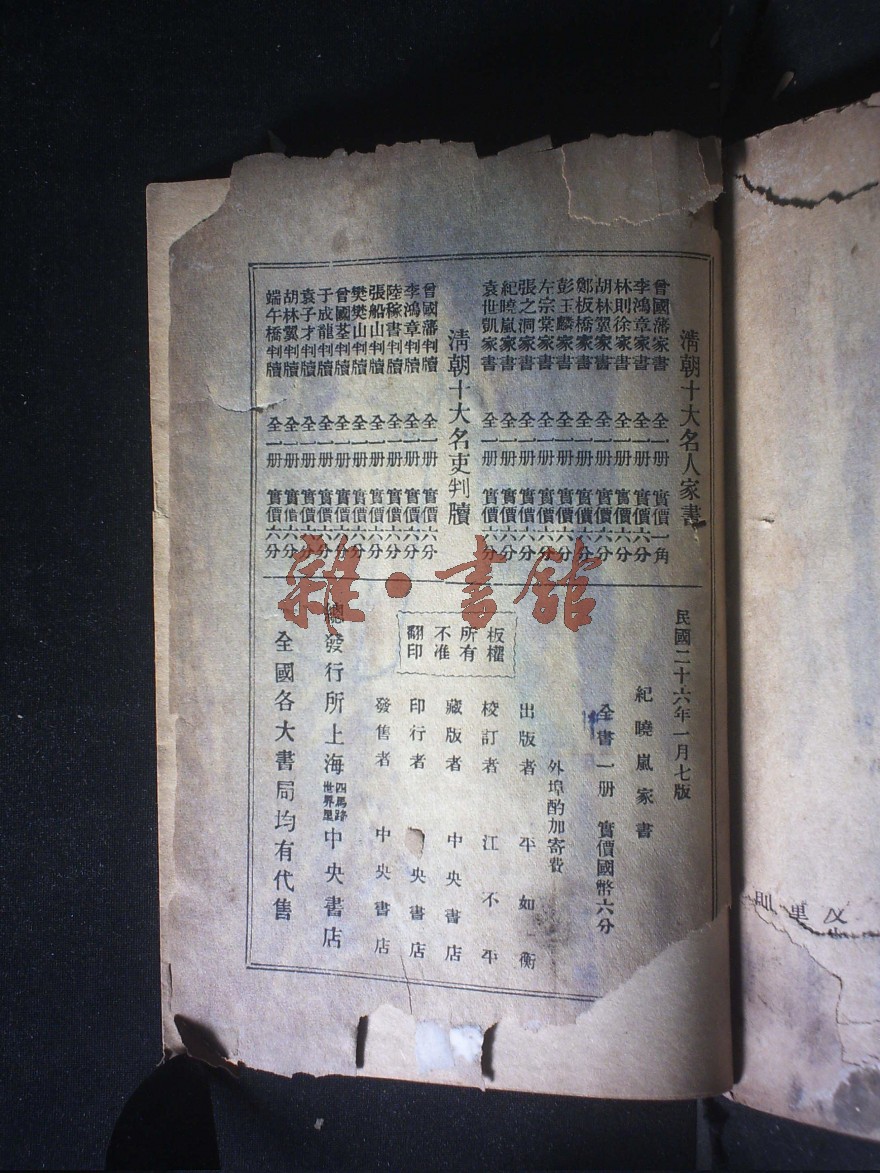 清朝十大名人家書
曾國藩家書 全一册 實價一角
李鴻章家書 全一册 實價六分
林則徐家書 全一册 實價六分
胡林翼家書 全一册 實價六分
鄭板橋家書 全一册 實價六分
彭玉麟家書 全一册 實價六分
左宗棠家書 全一册 實價六分
張之洞家書 全一册 實價六分
紀曉嵐家書 全一册 實價六分
袁世凱家書 全一册 實價六分
清朝十大名吏判牘
曾國藩判牘 全一册 實價六分
李鴻章判牘 全一册 實價六分
陸稼書判牘 全一册 實價六分
張船山判牘 全一册 實價六分
樊樊山判牘 全一册 實價六分
曾國荃判牘 全一册 實價六分
于成龍判牘 全一册 實價六分
袁子才判牘 全一册 實價六分
胡林翼判牘 全一册 實價六分
端午橋判牘 全一册 實價六分
民國二十六年一月七版
紀曉嵐家書
全書一册 實價國幣六分
外埠酌加寄費
出版者 平如衡
校訂者 江不平
藏版者 中央書店
印行者 央書店
發售者 中央書店
板權
所有
不准
翻印
總發行所上海四馬路世界里中央書店
全國各大書局均有代售
雜·書館